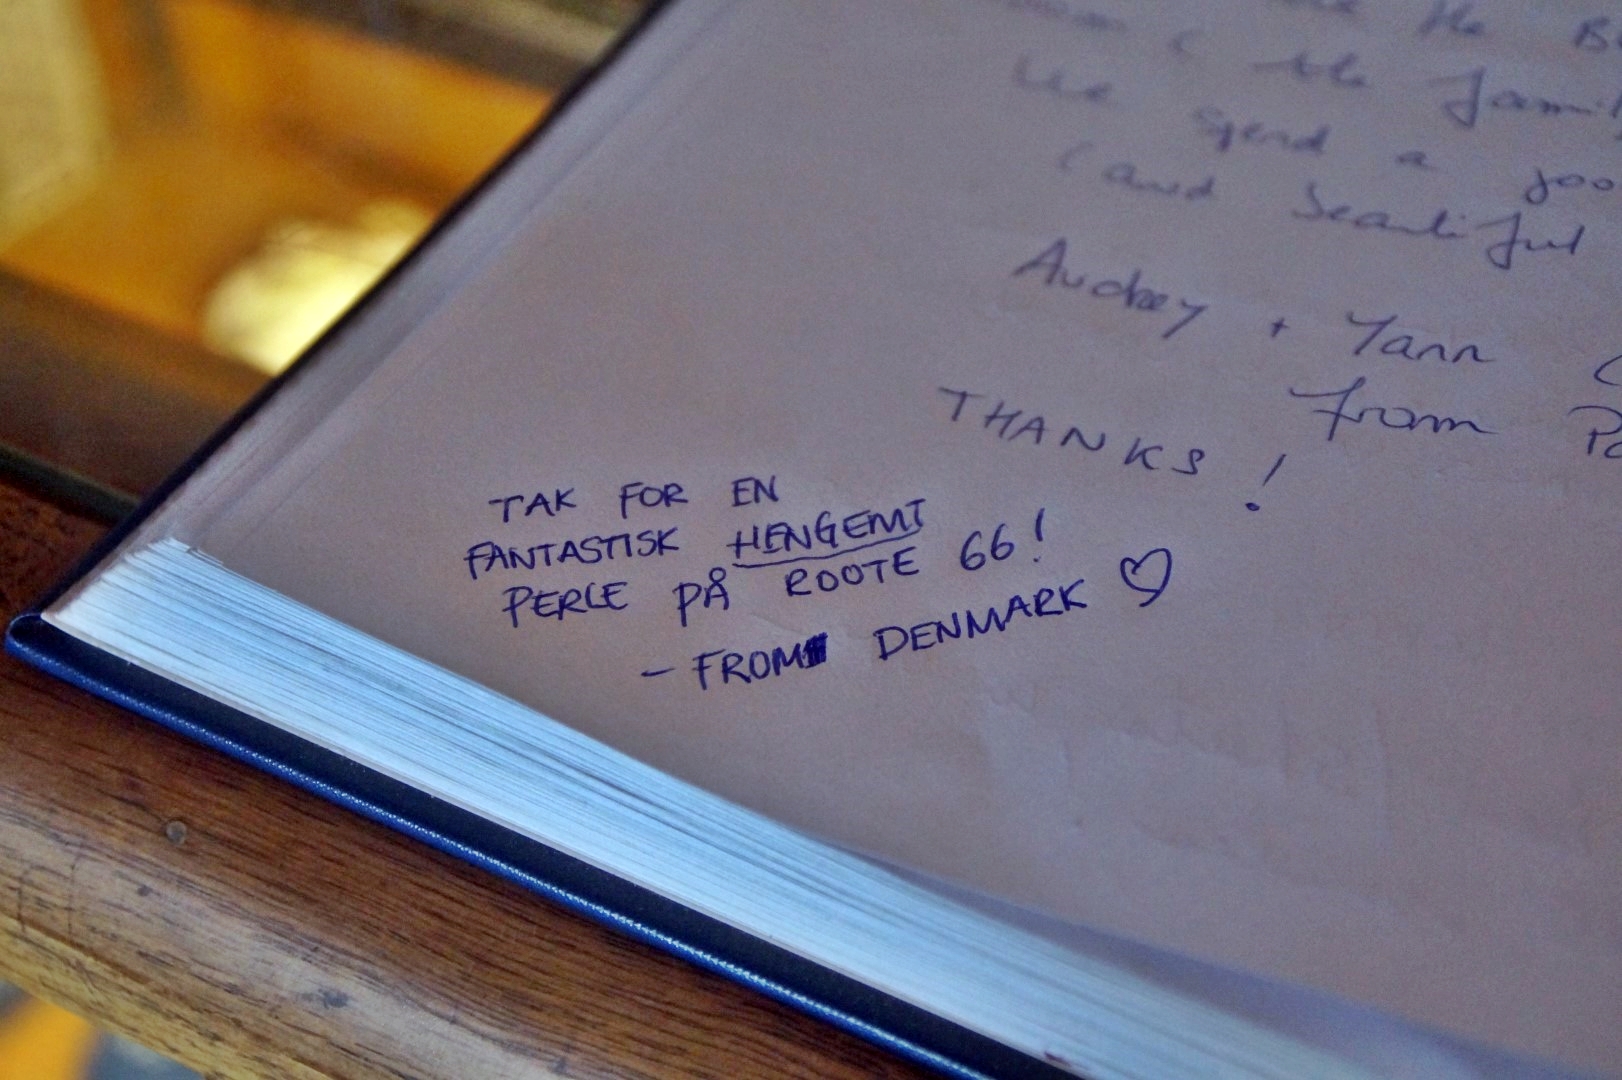 the B
( the famil
We spend a goo
(and beautiful
Audrey + Yann
from Pa
THANKS!
TAK FOR EN
FANTASTISK HENGEMT
PERLE PÅ ROOTE 66!
- FROM DENMARK ♡